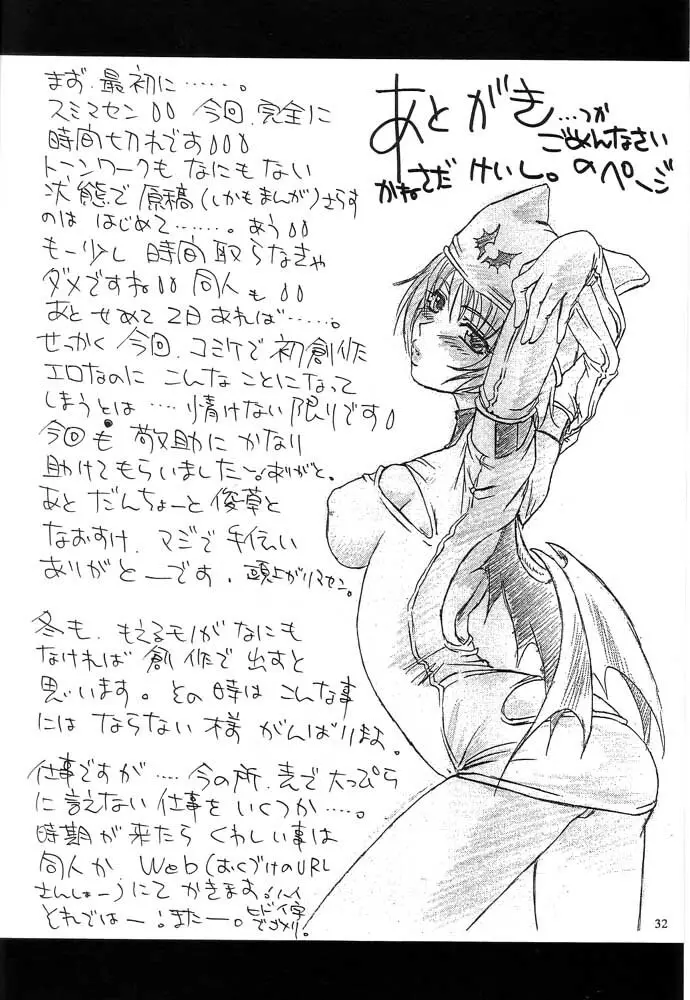 あとがき…つか
ごめんなさい
のページ
かねさだ けいし。
まず、最初に……。
スミマセン 今回、完全に
時間切れです
トーンワークも なにもない
状態で 原稿(しかもまんが)さらす
のは はじめて……。あう
もー少し 時間 取らなきゃ
ダメですね 同人も
あと せめて 2日 あれば……。
せっかく 今回、コミケで 初創作
エロなのに こんな ことになって
しまうとは… 情けない 限りです
今回も 敬助に かなり
助けて もらいました〜。ありがと。
あと だんちょーと 俊草と
なおすけ、マジで 手伝い
ありがとーです、頭上がりマセン。
冬も、もえるモノが なにも
なければ 創作で 出すと
思います。その時は こんな事
には ならない 様 がんばりまよ。
仕事ですが…… 今の所、表で 大っぴら
に 言えない 仕事を いくつか……。
時期が 来たら くわしい事は
同人か、Web(おくづけのURL
さんしょー)にて かきます!
それでは—!また—。ヒドイ字
でゴメリ!
32